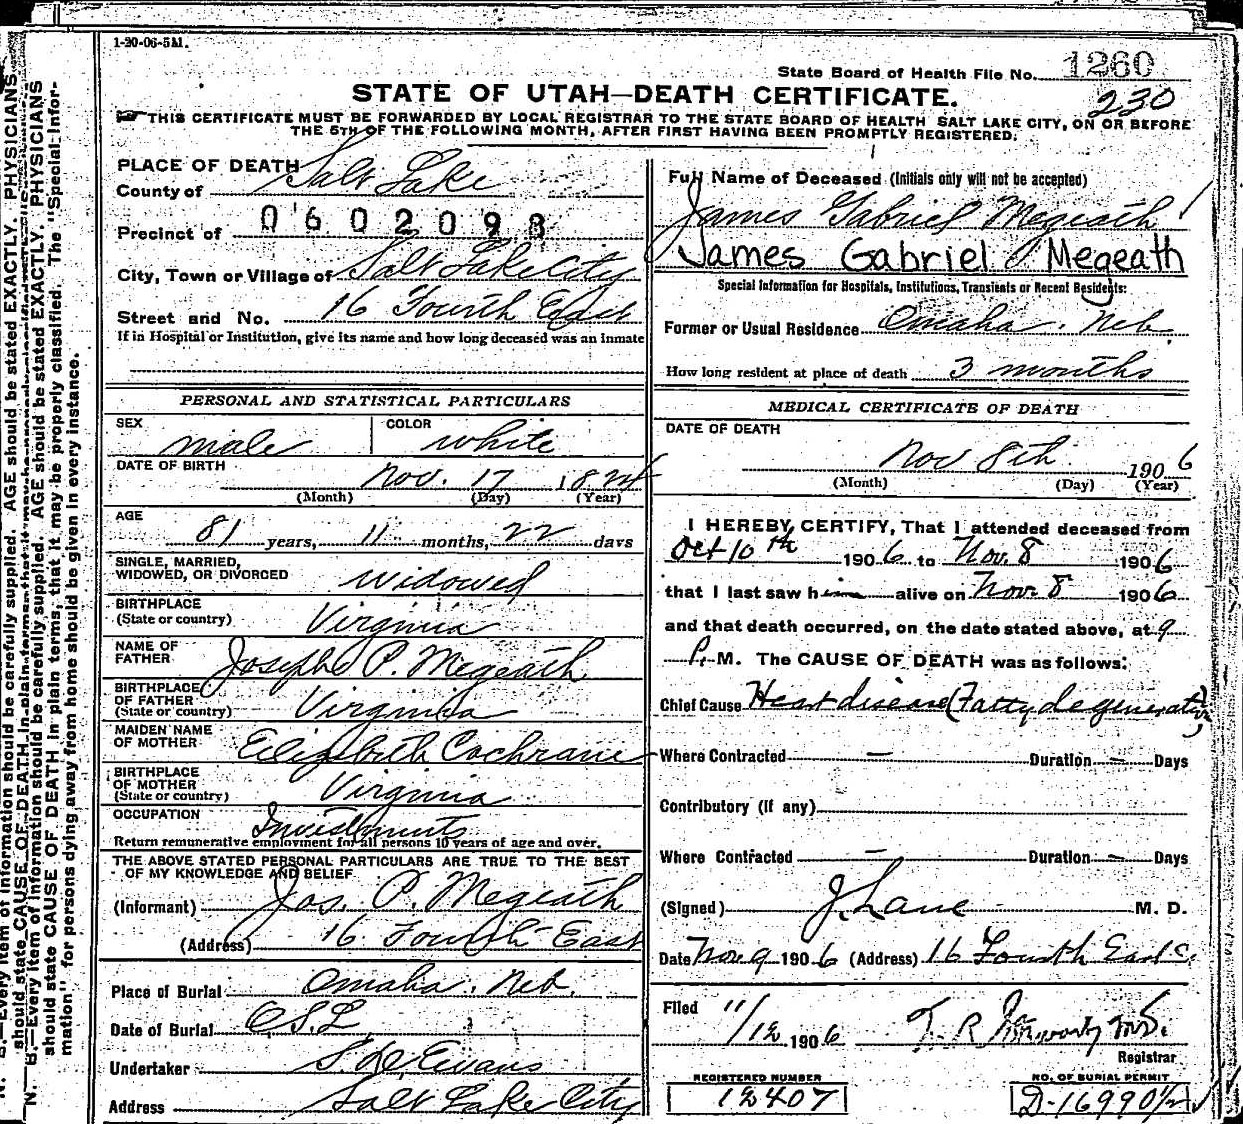 1-20-06-5M.
State Board of Health File No. 1260
230
STATE OF UTAH—DEATH CERTIFICATE.
THIS CERTIFICATE MUST BE FORWARDED BY LOCAL REGISTRAR TO THE STATE BOARD OF HEALTH SALT LAKE CITY, ON OR BEFORE
THE 5TH OF THE FOLLOWING MONTH, AFTER FIRST HAVING BEEN PROMPTLY REGISTERED.
PLACE OF DEATH
County of Salt Lake
Precinct of 0602098
City, Town or Village of Salt Lake City
Street and No. 16 Fourth East
If in Hospital or Institution, give its name and how long deceased was an inmate
Full Name of Deceased (Initials only will not be accepted)
James Gabriel Megeath
James Gabriel Megeath
Special Information for Hospitals, Institutions, Transients or Recent Residents:
Former or Usual Residence Omaha, Neb
How long resident at place of death 3 months
PERSONAL AND STATISTICAL PARTICULARS
SEX male COLOR white
DATE OF BIRTH Nov. 17 1824
(Month) (Day) (Year)
AGE 81 years, 11 months, 22 days
SINGLE, MARRIED,
WIDOWED, OR DIVORCED widowed
BIRTHPLACE
(State or country) Virginia
NAME OF
FATHER Josephe P. Megeath
BIRTHPLACE
OF FATHER
(State or country) Virginia
MAIDEN NAME
OF MOTHER Elizabeth Cochrane
BIRTHPLACE
OF MOTHER
(State or country) Virginia
OCCUPATION Investments
Return remunerative employment for all persons 10 years of age and over.
THE ABOVE STATED PERSONAL PARTICULARS ARE TRUE TO THE BEST
OF MY KNOWLEDGE AND BELIEF
(Informant) Jos. P. Megeath
(Address) 16 Fourth East
Place of Burial Omaha, Neb.
Date of Burial O.S.L
Undertaker S. D. Evans
Address Salt Lake City
MEDICAL CERTIFICATE OF DEATH
DATE OF DEATH
Nov 8th 1906
(Month) (Day) (Year)
I HEREBY CERTIFY, That I attended deceased from
Oct 10th 1906 to Nov. 8 1906
that I last saw him alive on Nov. 8 1906
and that death occurred, on the date stated above, at 9
P. M. The CAUSE OF DEATH was as follows:
Chief Cause Heart disease (Fatty degeneration)
Where Contracted — Duration — Days
Contributory (If any)
Where Contracted — Duration — Days
(Signed) J. Lane M. D.
Date Nov. 9 1906 (Address) 16 Fourth East
Filed 11/12 1906 T. R.
Registrar
REGISTERED NUMBER
12407
NO. OF BURIAL PERMIT
D-16990 1/2
N. B.—Every item of information should be carefully supplied. AGE should be stated EXACTLY. PHYSICIANS
should state CAUSE OF DEATH in plain terms, that it may be properly classified. The "Special Infor-
mation" for persons dying away from home should be given in every instance.